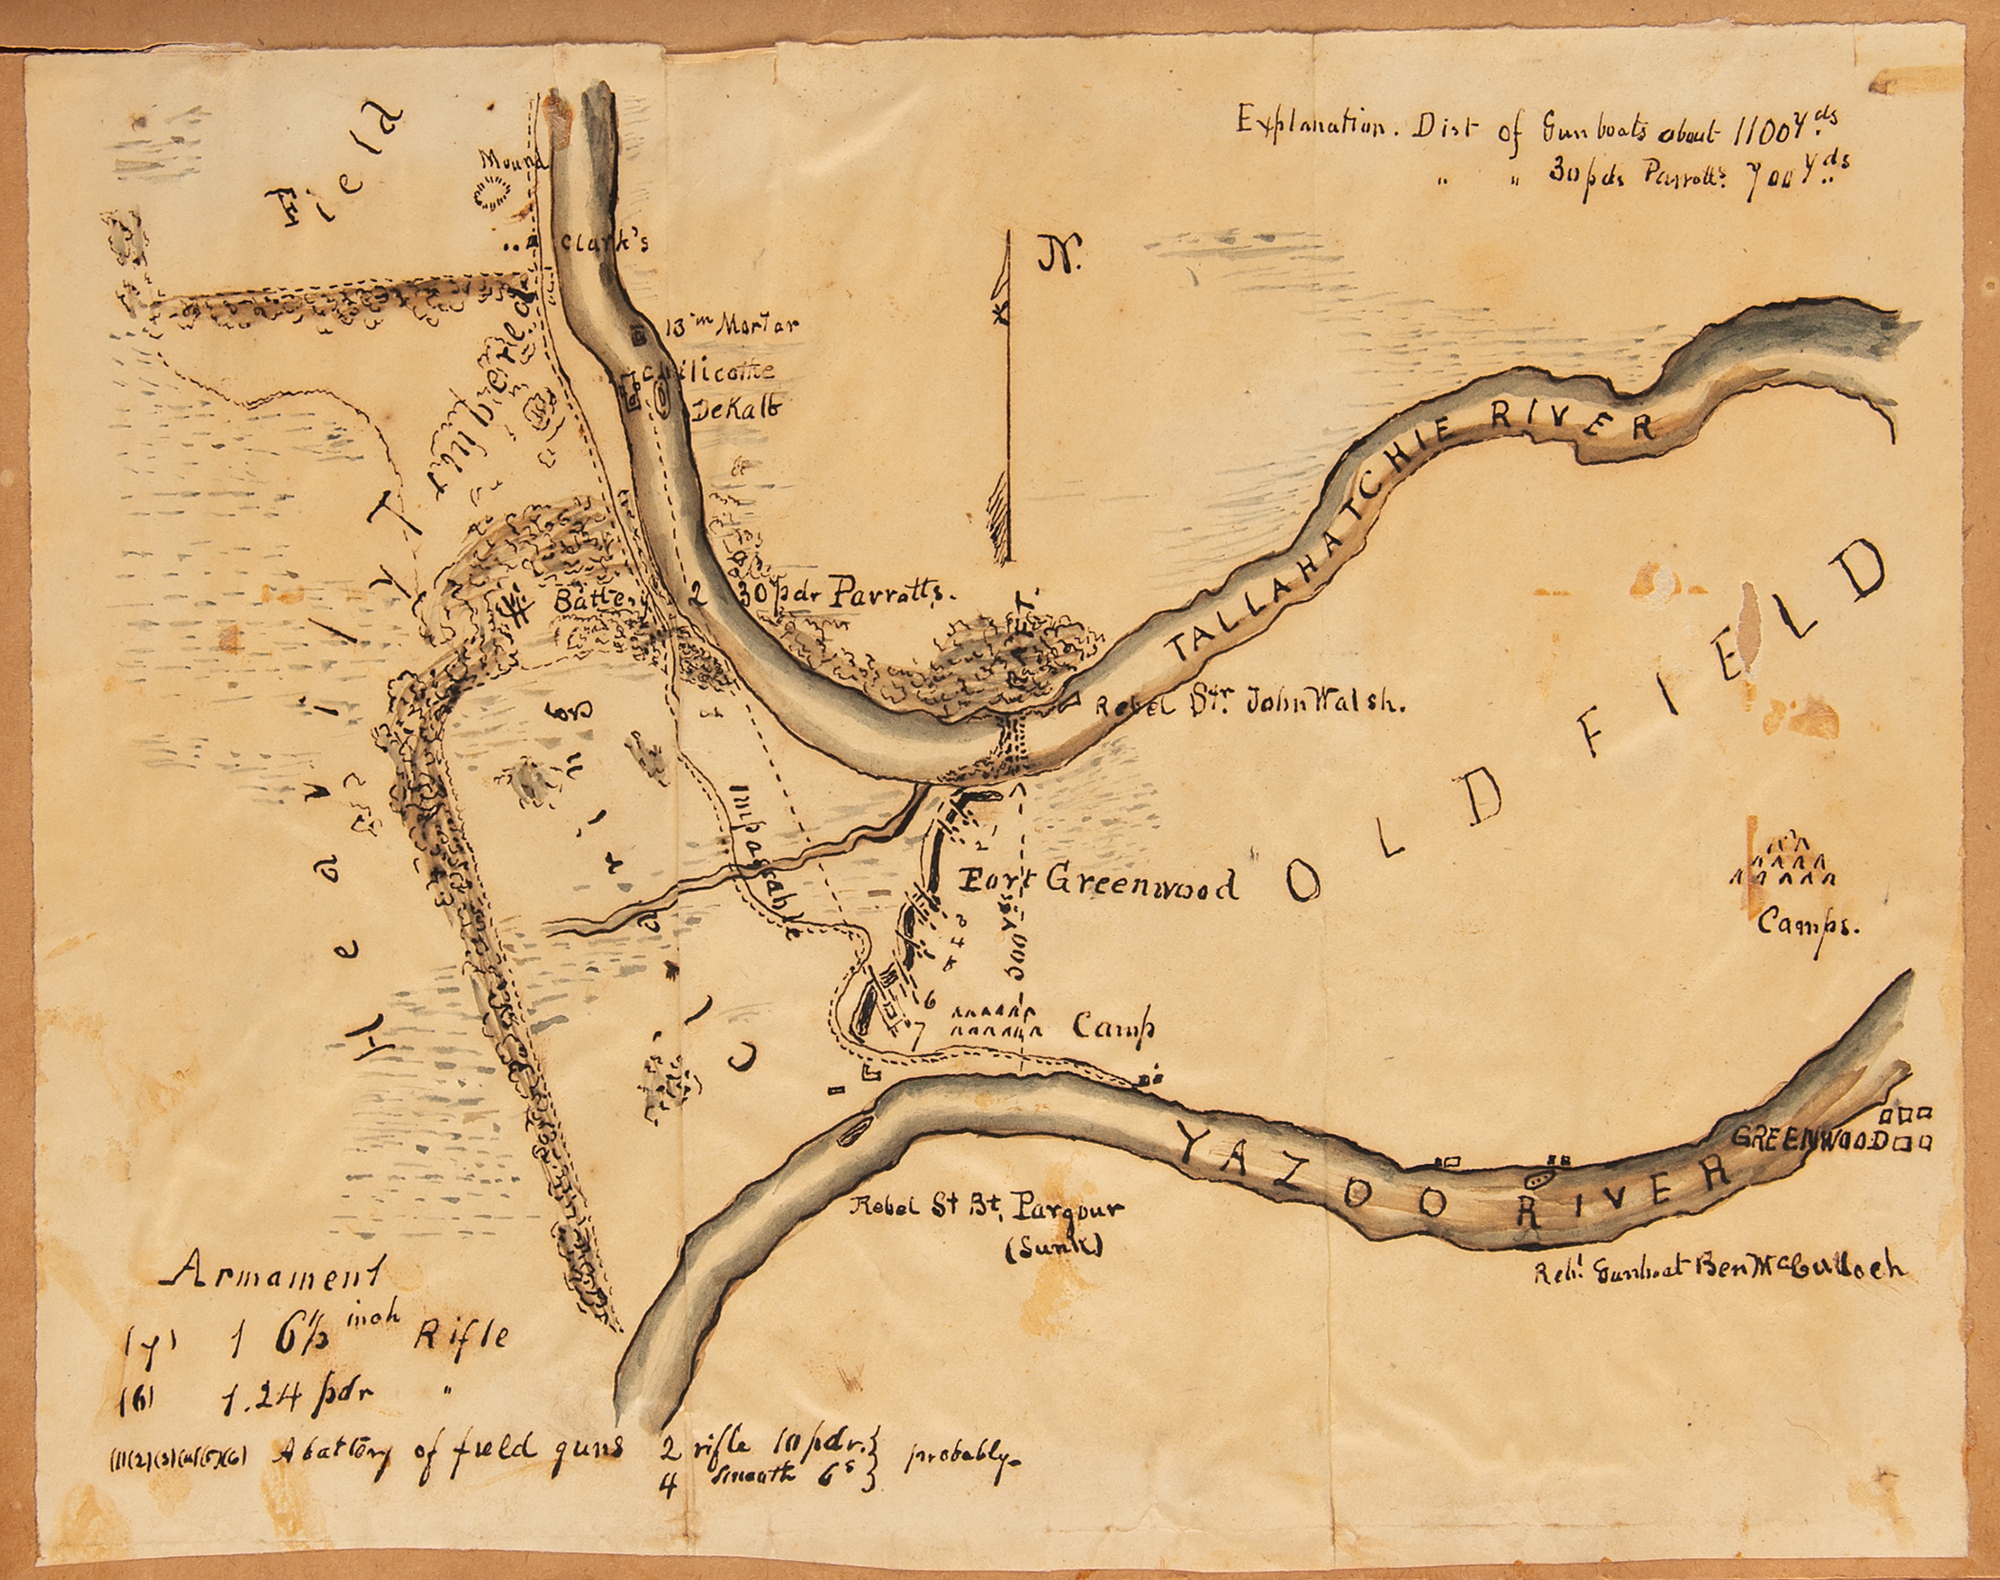 Explanation. Dist of Gun boats about 1100 yds
" " 30 pds Parrotts. 700 yds
Field
Mound
Clark's
N.
13 in Mortar
Chilicothe
DeKalb
Timbered
Battery
2 30 pdr Parrotts.
TALLAHATCHIE RIVER
Rebel Str. John Walsh.
Heavily
Impassable
OLD FIELD
Fort Greenwood
900 yds
2
3
4
5
6
7
Camps.
Camp
Old
GREENWOOD
YAZOO RIVER
Rebel St Bt. Pargour
(Sunk)
Reb! Gunboat Ben McCulloch
Armament
(7) 1 6 1/2 inch Rifle
(6) 1. 24 pdr "
(1)(2)(3)(4)(5)(6) A battery of field guns 2 rifle 10 pdr. } probably.
4 Smooth 6s }